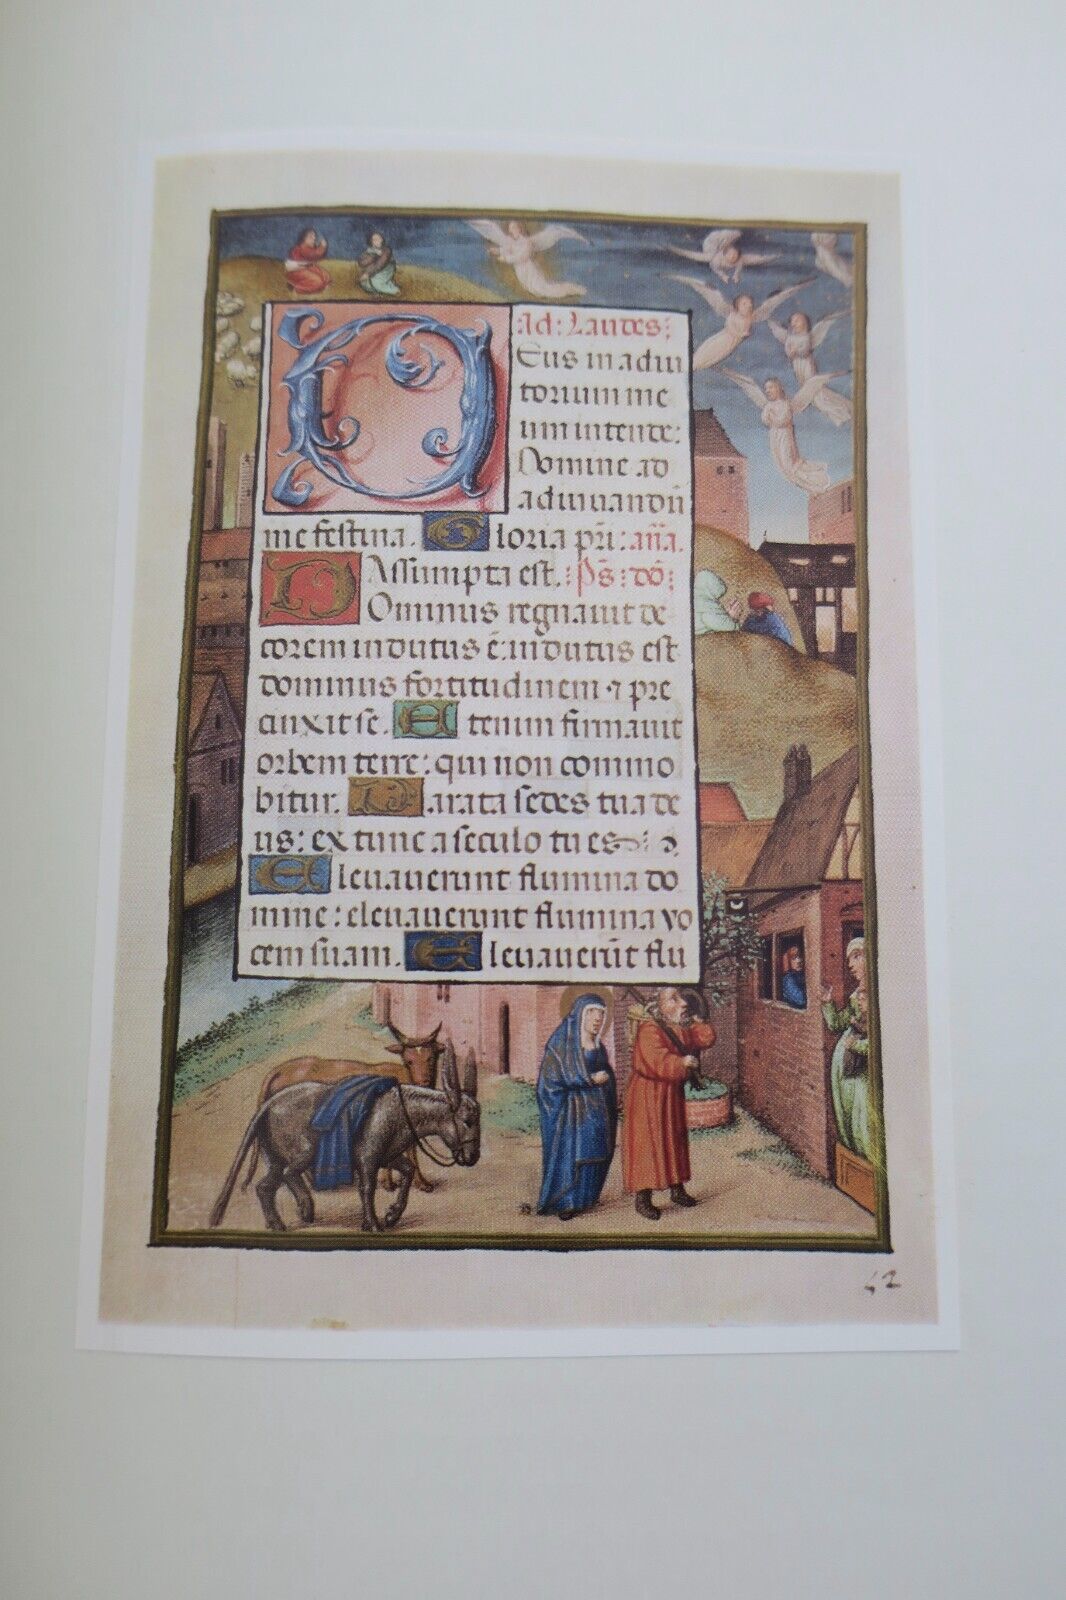 ad: Laudes:
Deus in adiu
torium me
um intende:
Domine ad
adiuuandū
me festina. Gloria pr̄i: an̄a.
Assumpta est. : Ps̄: dō:
Dominus regnauit de
corem indutus ē: indutus est
dominus fortitudinem ⁊ pre
cinxit se. Etenim firmauit
orbem terre: qui non commo
bitur. Parata sedes tua de
us: ex tunc a seculo tu es:
Eleuauerunt flumina do
mine: eleuauerunt flumina vo
cem suam. Eleuauerūt flu
42